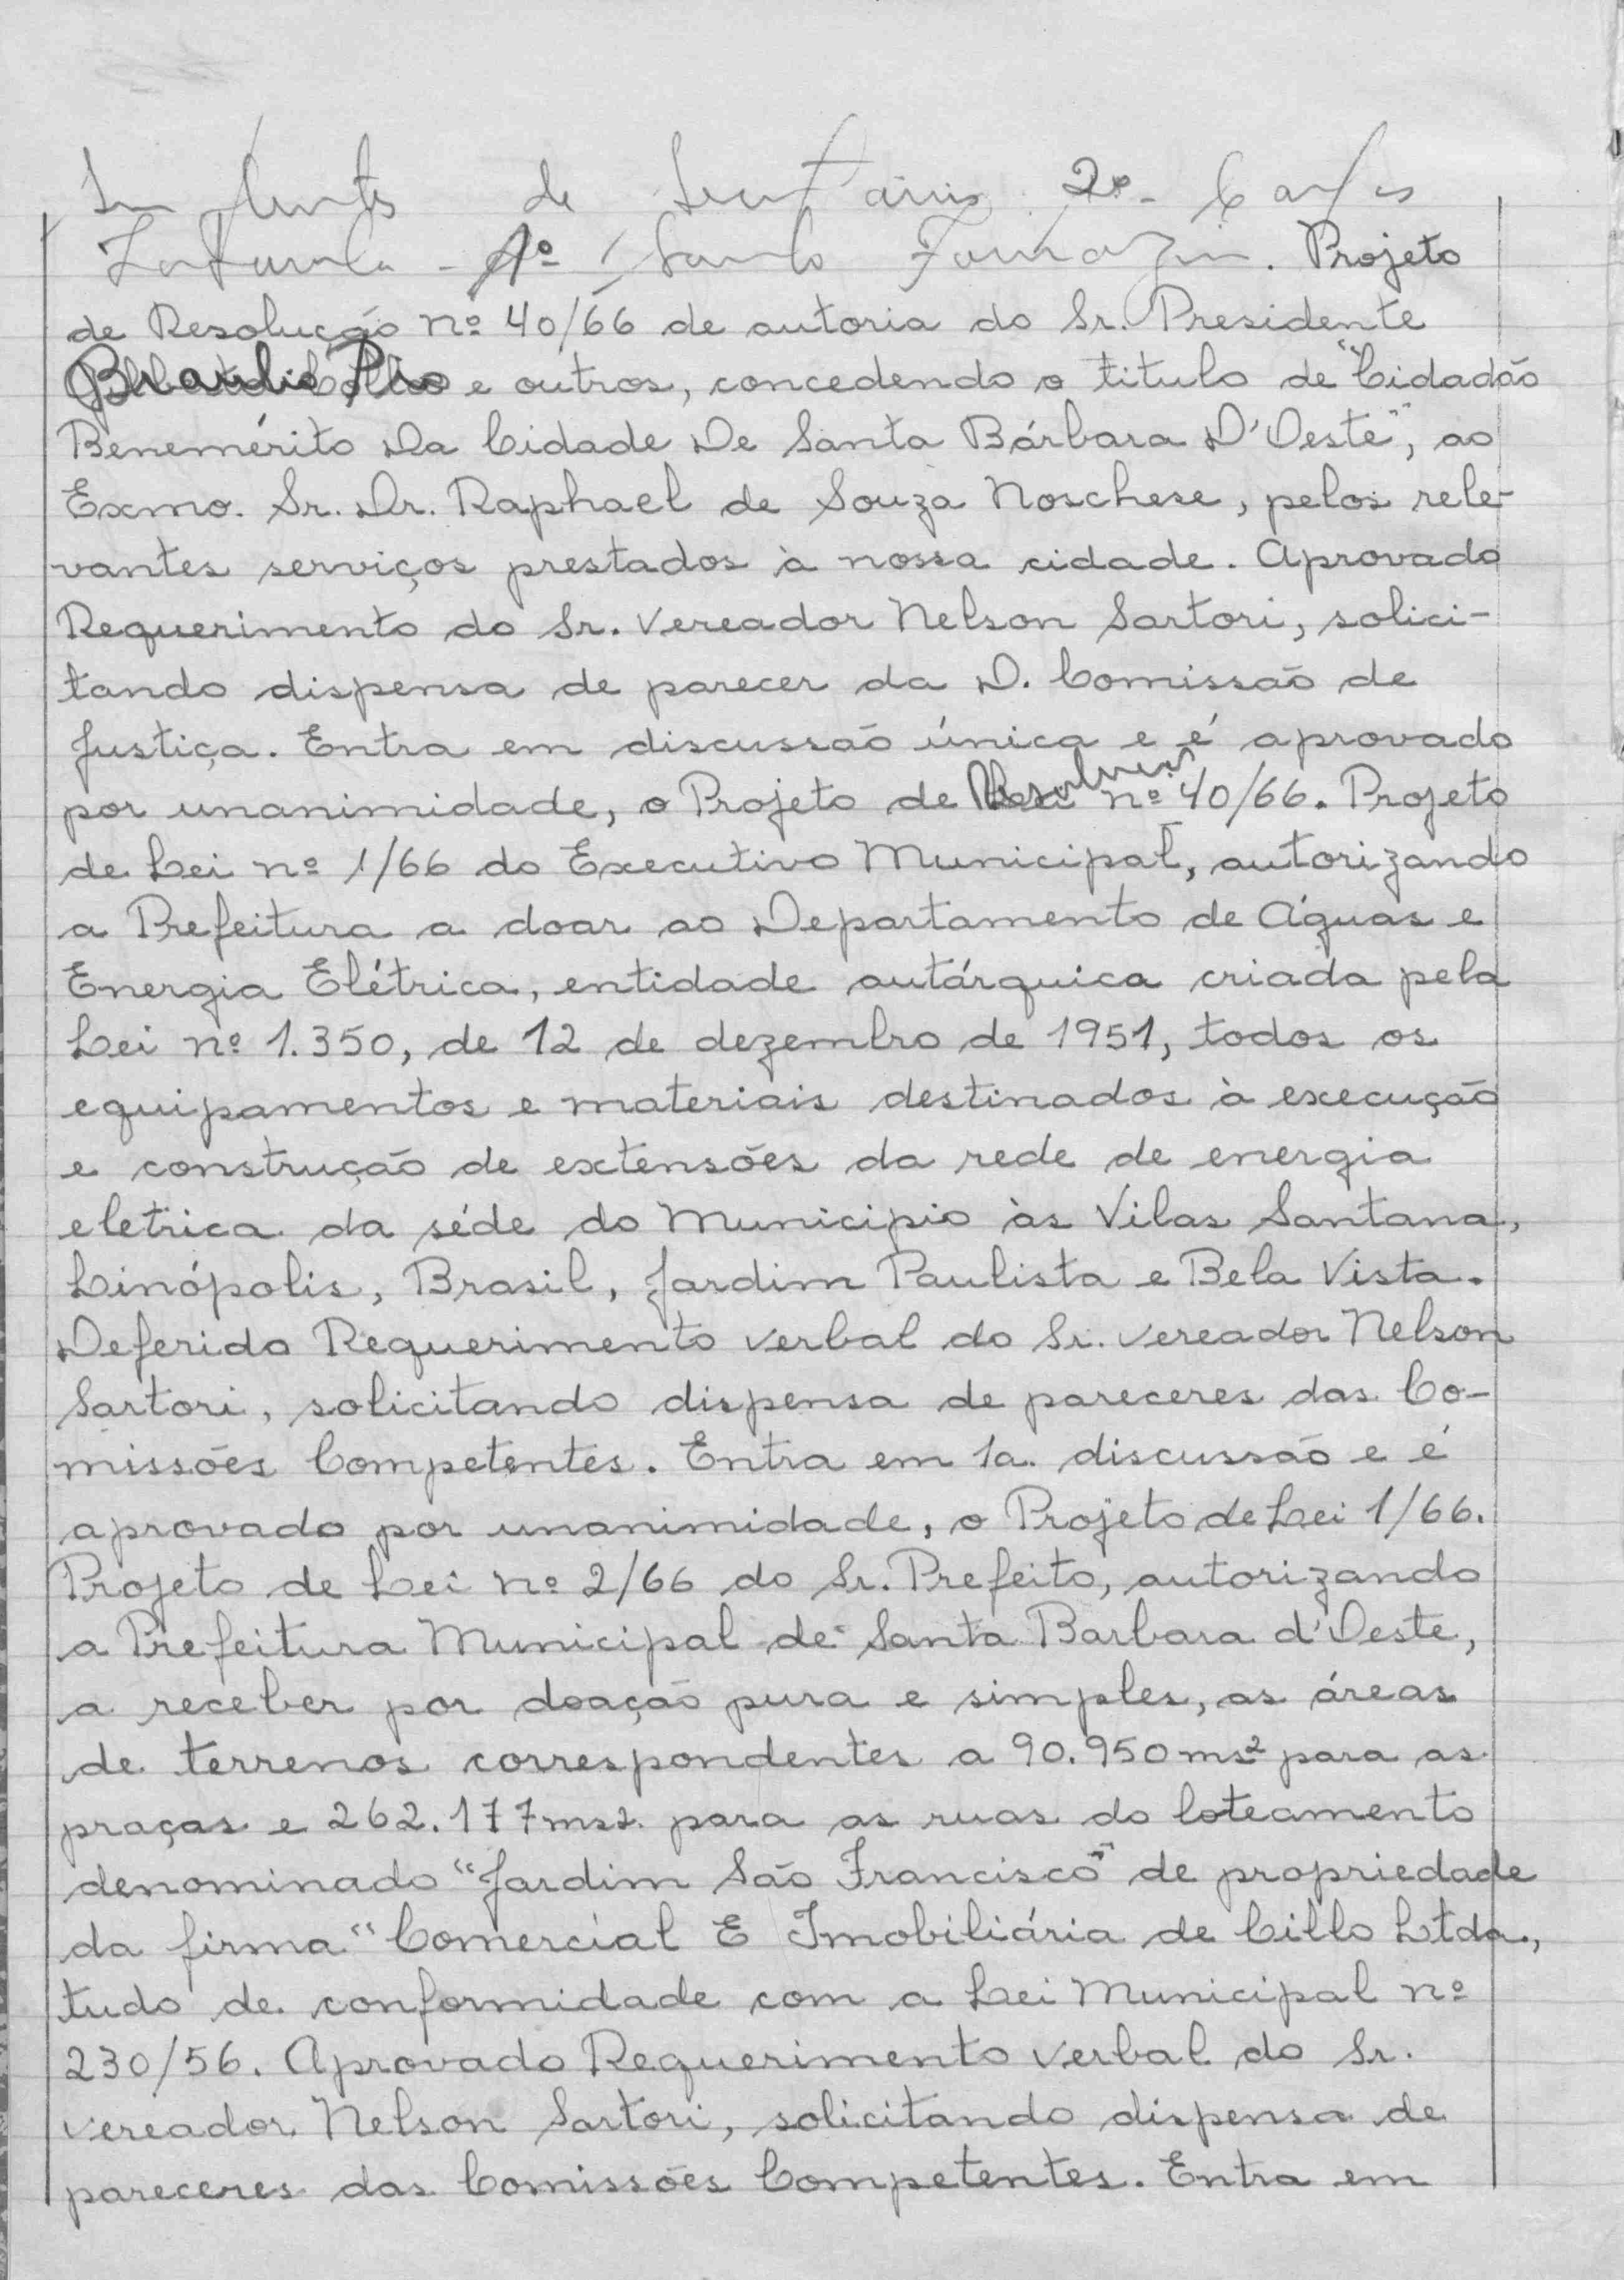 de 2º
1º Projeto
de Resolução nº 40/66 de autoria do Sr. Presidente
Braulio Pio e outros, concedendo o titulo de "Cidadão
Benemérito Da Cidade De Santa Bárbara D'Oeste", ao
Exmo. Sr. Dr. Raphael de Souza Noschese, pelos rele-
vantes serviços prestados à nossa cidade. Aprovado
Requerimento do Sr. Vereador Nelson Sartori, solici-
tando dispensa de parecer da D. Comissão de
Justiça. Entra em discussão única e é aprovado
por unanimidade, o Projeto de nº 40/66. Projeto
de Lei nº 1/66 do Executivo Municipal, autorizando
a Prefeitura a doar ao Departamento de Águas e
Energia Elétrica, entidade autárquica criada pela
Lei nº 1.350, de 12 de dezembro de 1951, todos os
equipamentos e materiais destinados à execução
e construção de extensões da rede de energia
eletrica da séde do Municipio às Vilas Santana,
Linópolis, Brasil, Jardim Paulista e Bela Vista.
Deferido Requerimento verbal do Sr. vereador Nelson
Sartori, solicitando dispensa de pareceres das Co-
missões Competentes. Entra em 1a. discussão e é
aprovado por unanimidade, o Projeto de Lei 1/66.
Projeto de Lei nº 2/66 do Sr. Prefeito, autorizando
a Prefeitura Municipal de Santa Barbara d'Oeste,
a receber por doação pura e simples, as áreas
de terrenos correspondentes a 90.950 ms² para as
praças e 262.177 ms2. para as ruas do loteamento
denominado "Jardim São Francisco" de propriedade
da firma "Comercial E Imobiliária de Cillo Ltda.,
tudo de conformidade com a Lei Municipal nº
230/56. Aprovado Requerimento verbal do Sr.
vereador Nelson Sartori, solicitando dispensa de
pareceres das Comissões Competentes. Entra em